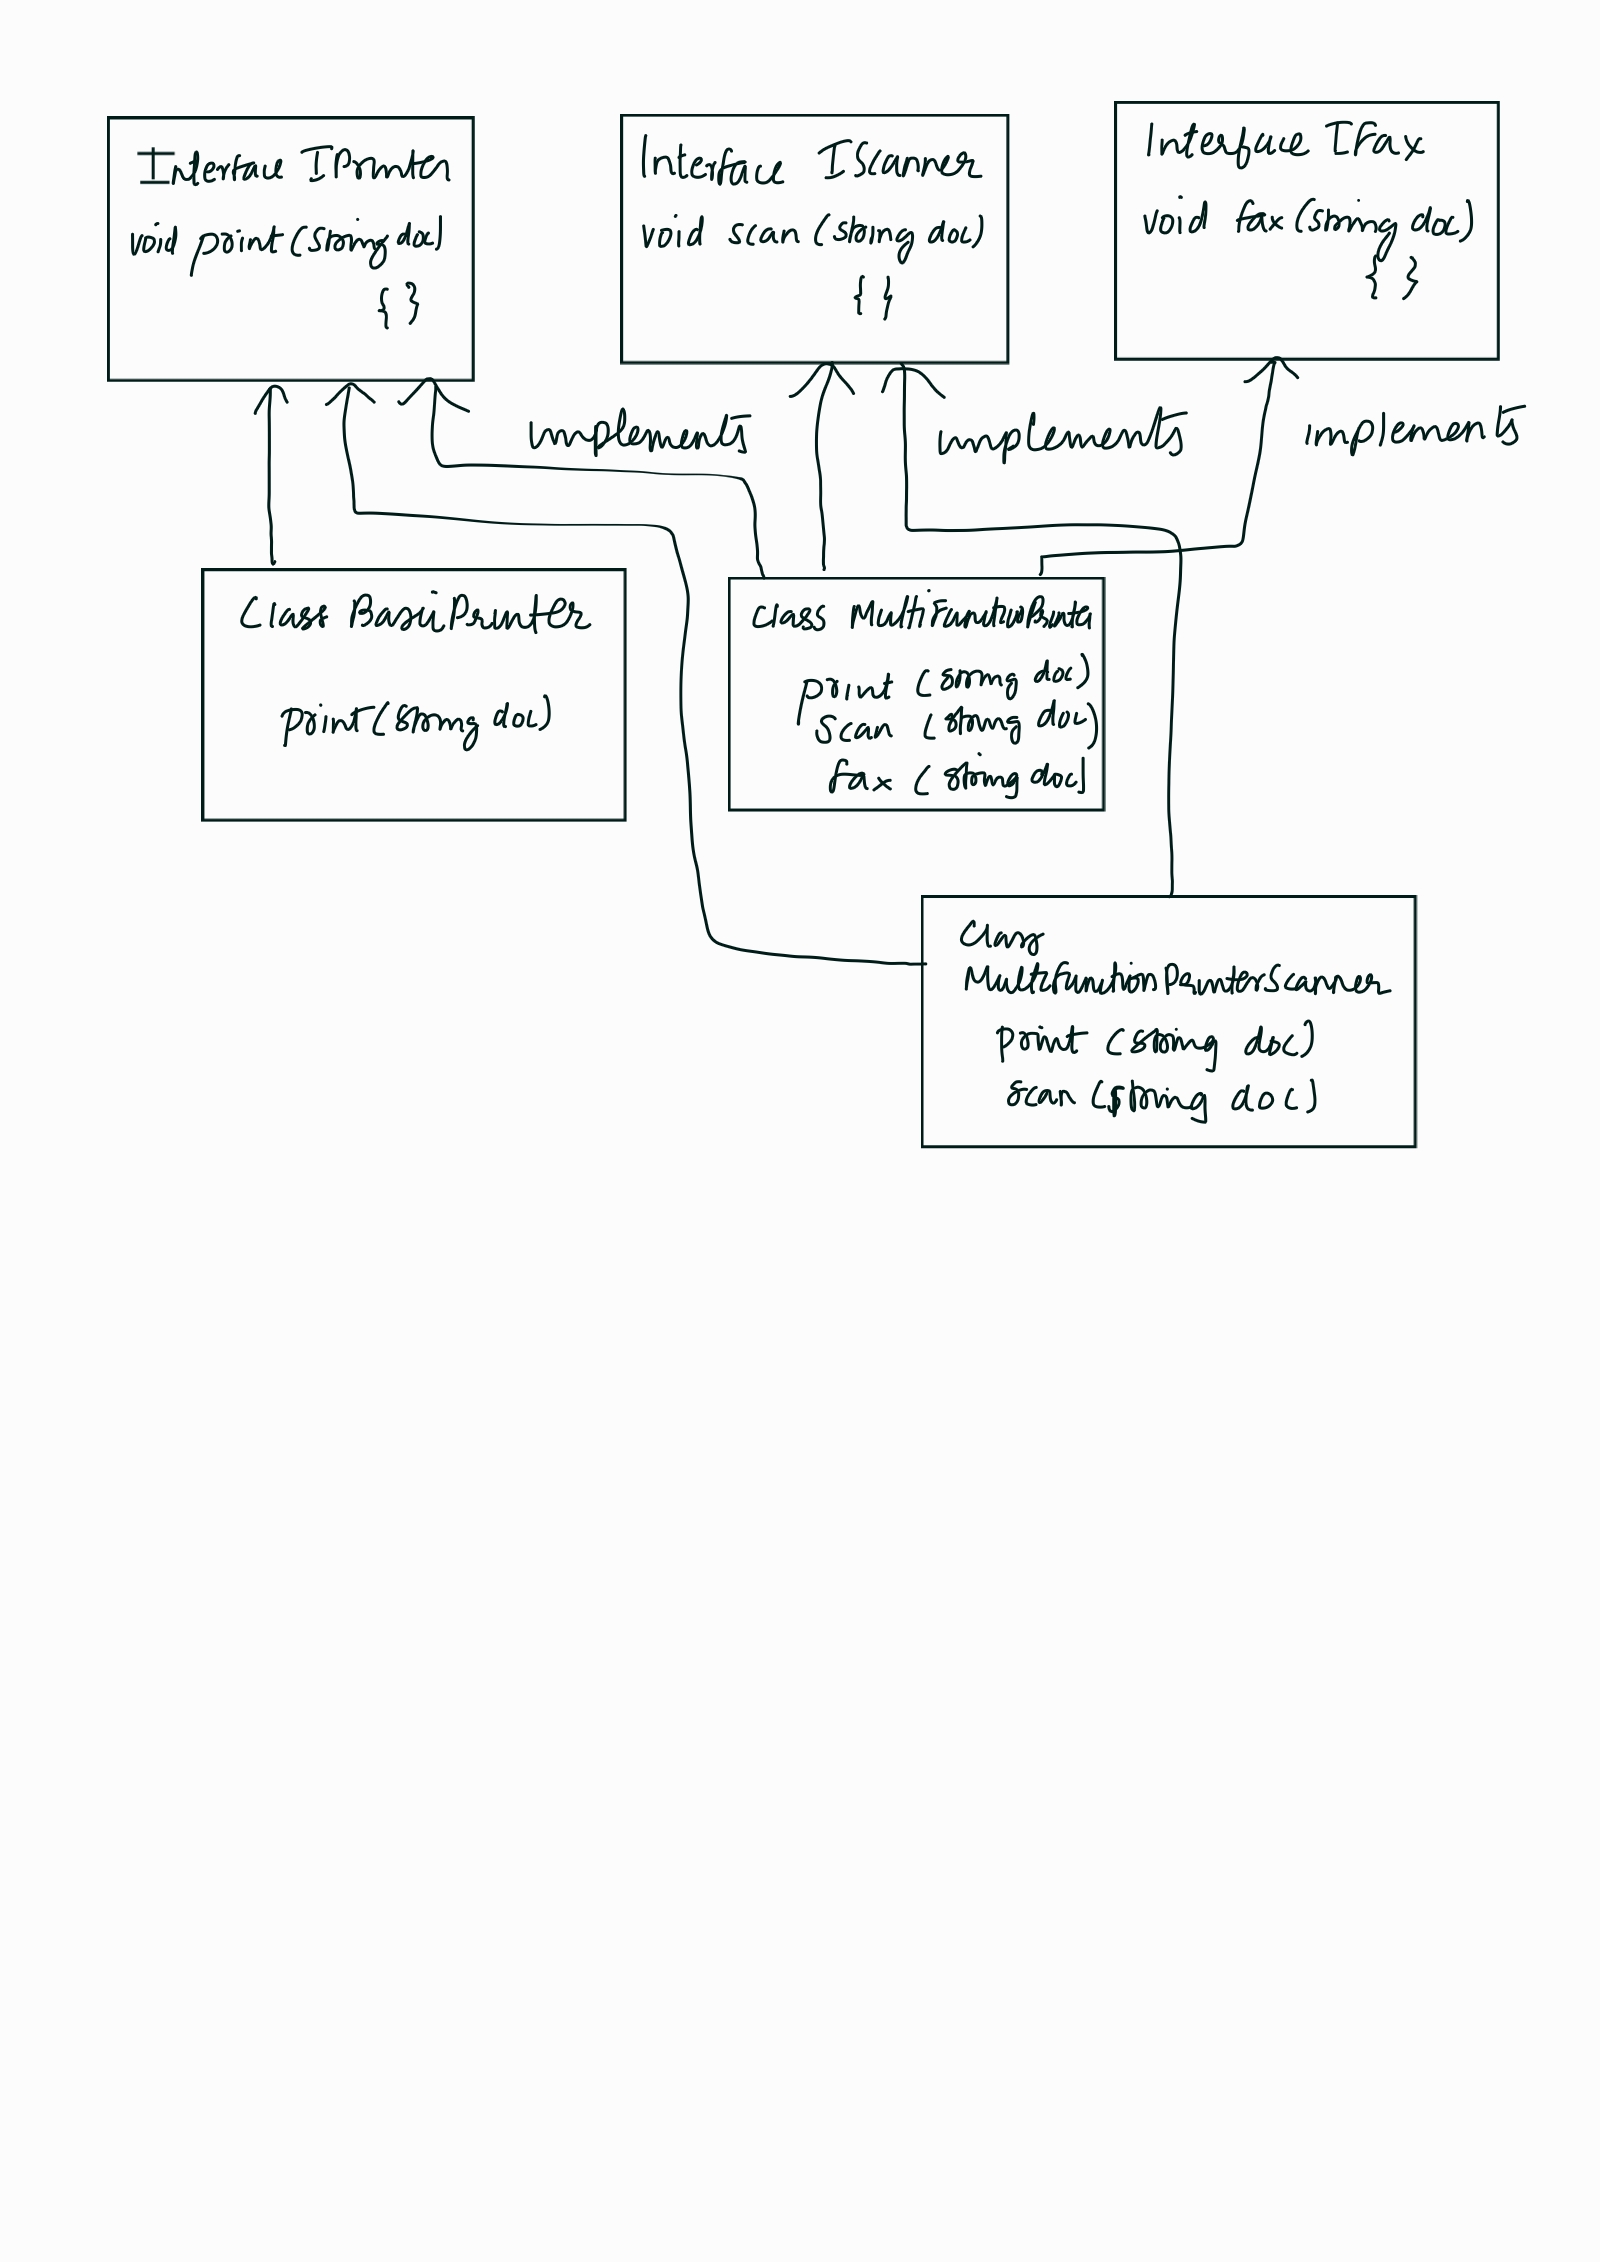 Interface IPrinter
void print(string doc)
{ }
Interface IScanner
void scan (string doc)
{ }
Interface IFax
void fax(string doc)
{ }
implements
implements
implements
Class BasicPrinter
print(string doc)
class MultiFunctionPrinter
print (string doc)
scan (string doc)
fax (string doc)
Class
MultifunctionPrinterScanner
print (string doc)
scan (string doc)